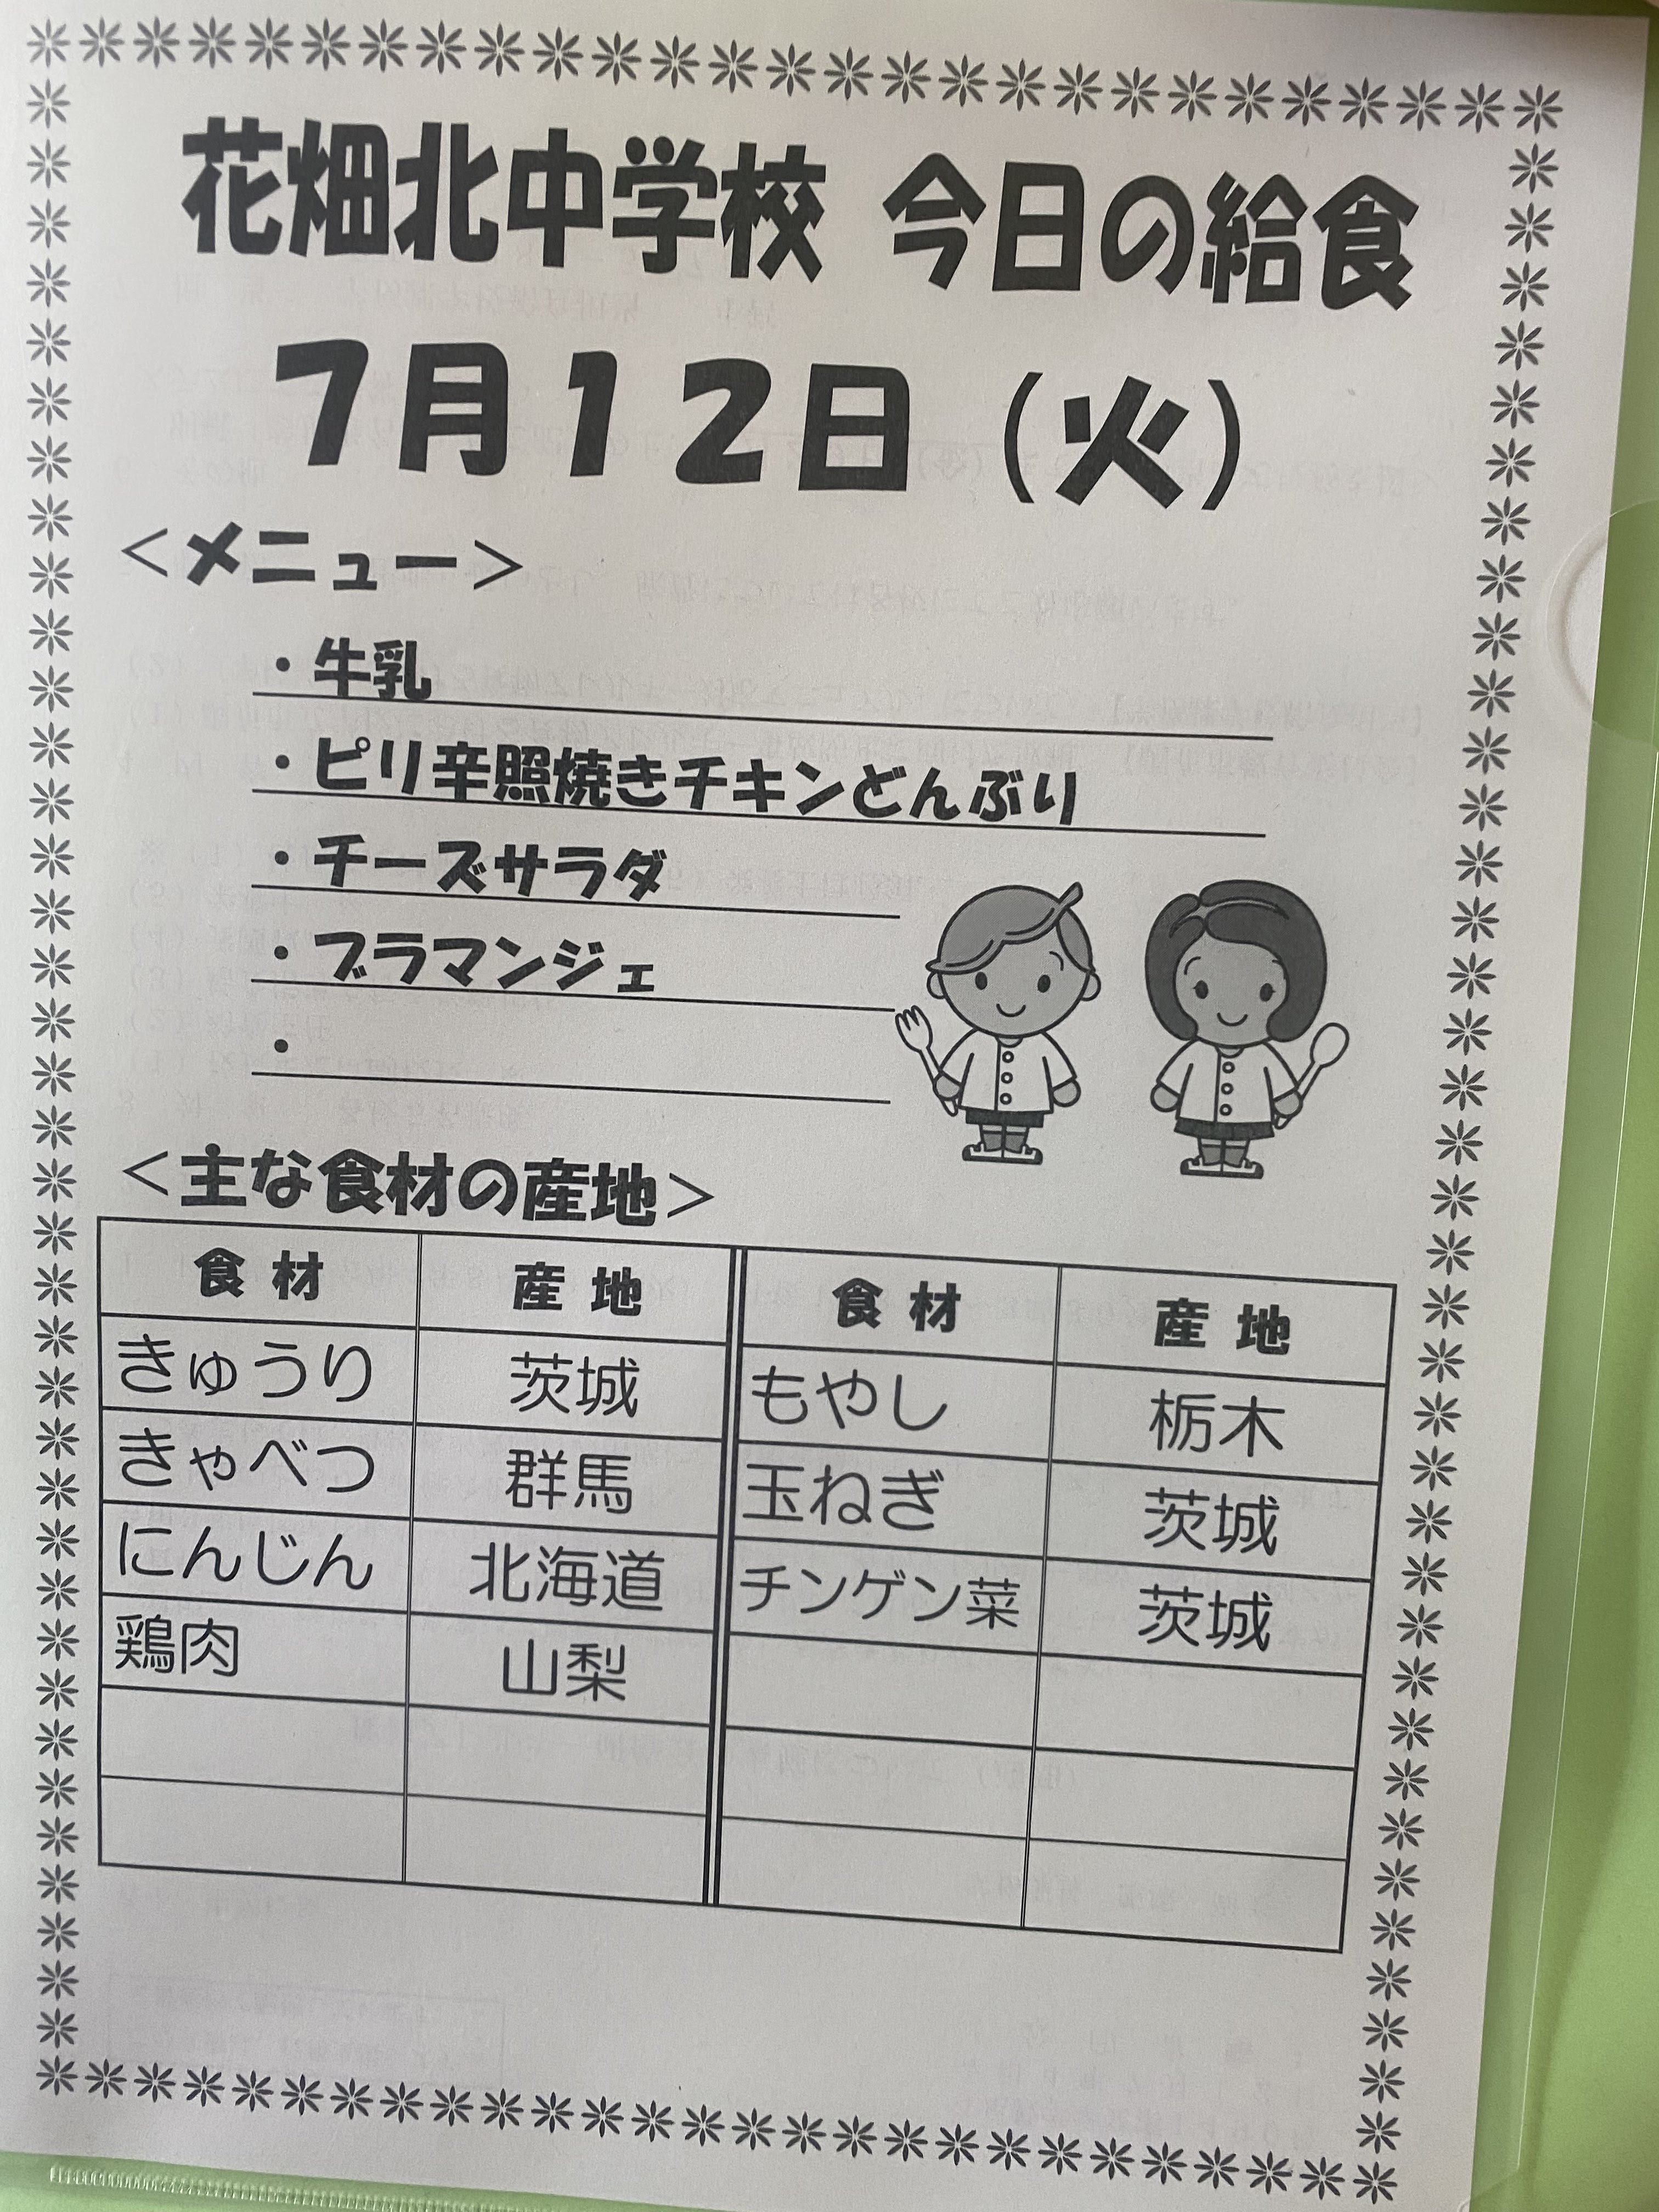 花畑北中学校 今日の給食
7月12日（火）
＜メニュー＞
・牛乳
・ピリ辛照焼きチキンどんぶり
・チーズサラダ
・ブラマンジェ
・
＜主な食材の産地＞
食材 産地 食材 産地
きゅうり 茨城 もやし 栃木
きゃべつ 群馬 玉ねぎ 茨城
にんじん 北海道 チンゲン菜 茨城
鶏肉 山梨